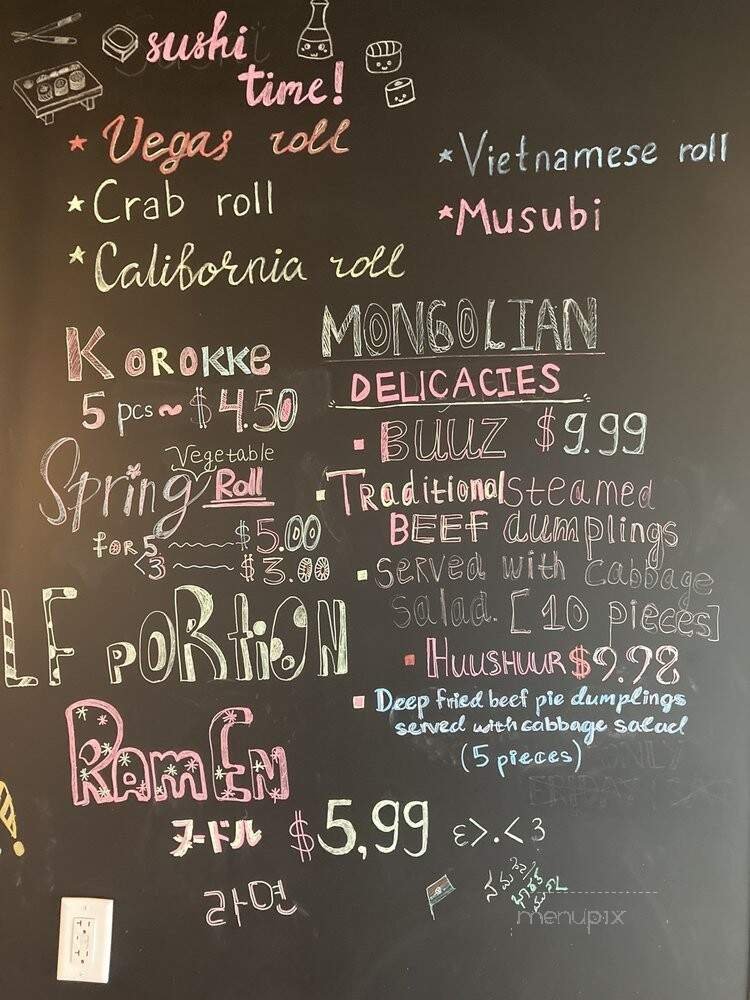 sushi
time!
* Vegas roll
* Crab roll
* California roll
* Vietnamese roll
* Musubi
KOROKKE
5 pcs ~ $4.50
Spring Vegetable Roll
for 5 $5.00
<3 $3.00
LF PORTION
RAMEN
ヌードル $5,99 ε>.<3
라면
MONGOLIAN
DELICACIES
BUUZ $9.99
Traditional steamed
BEEF dumplings
served with cabbage
salad. [10 pieces]
HUUSHUUR $9.98
Deep fried beef pie dumplings
served with cabbage salad
(5 pieces)
menupix